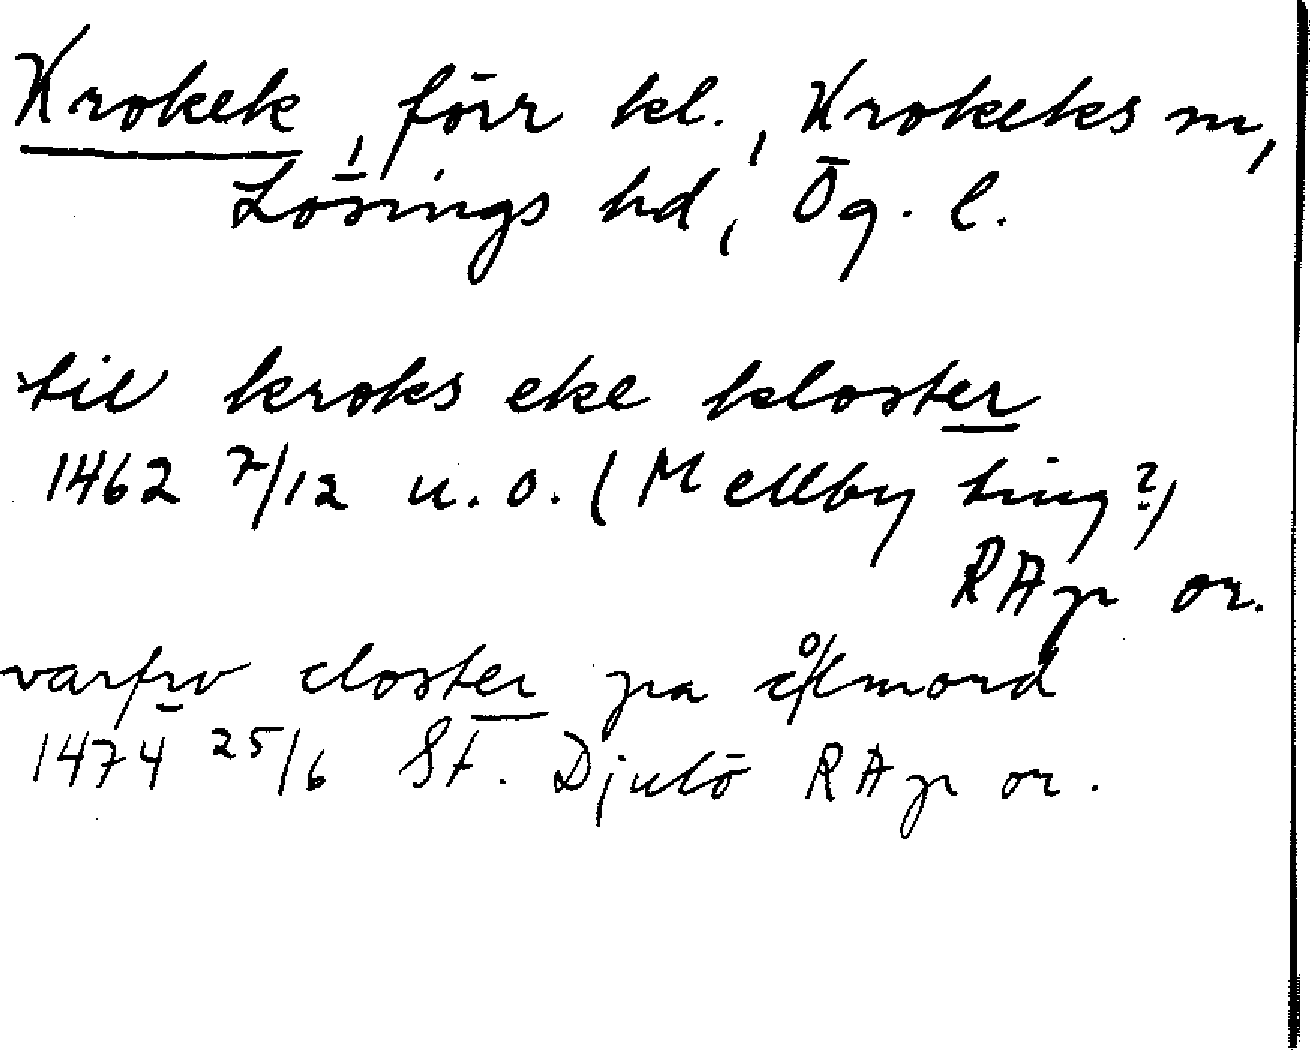 Krokek, förr kl., Krokeks sn,
Lösings hd, Ög. l.
til kroks eke kloster
1462 7/12 u.o. (Mellby ting?)
RAp or.
varfrv closter pa kålmord
1474 25/6 St. Djulö RAp or.